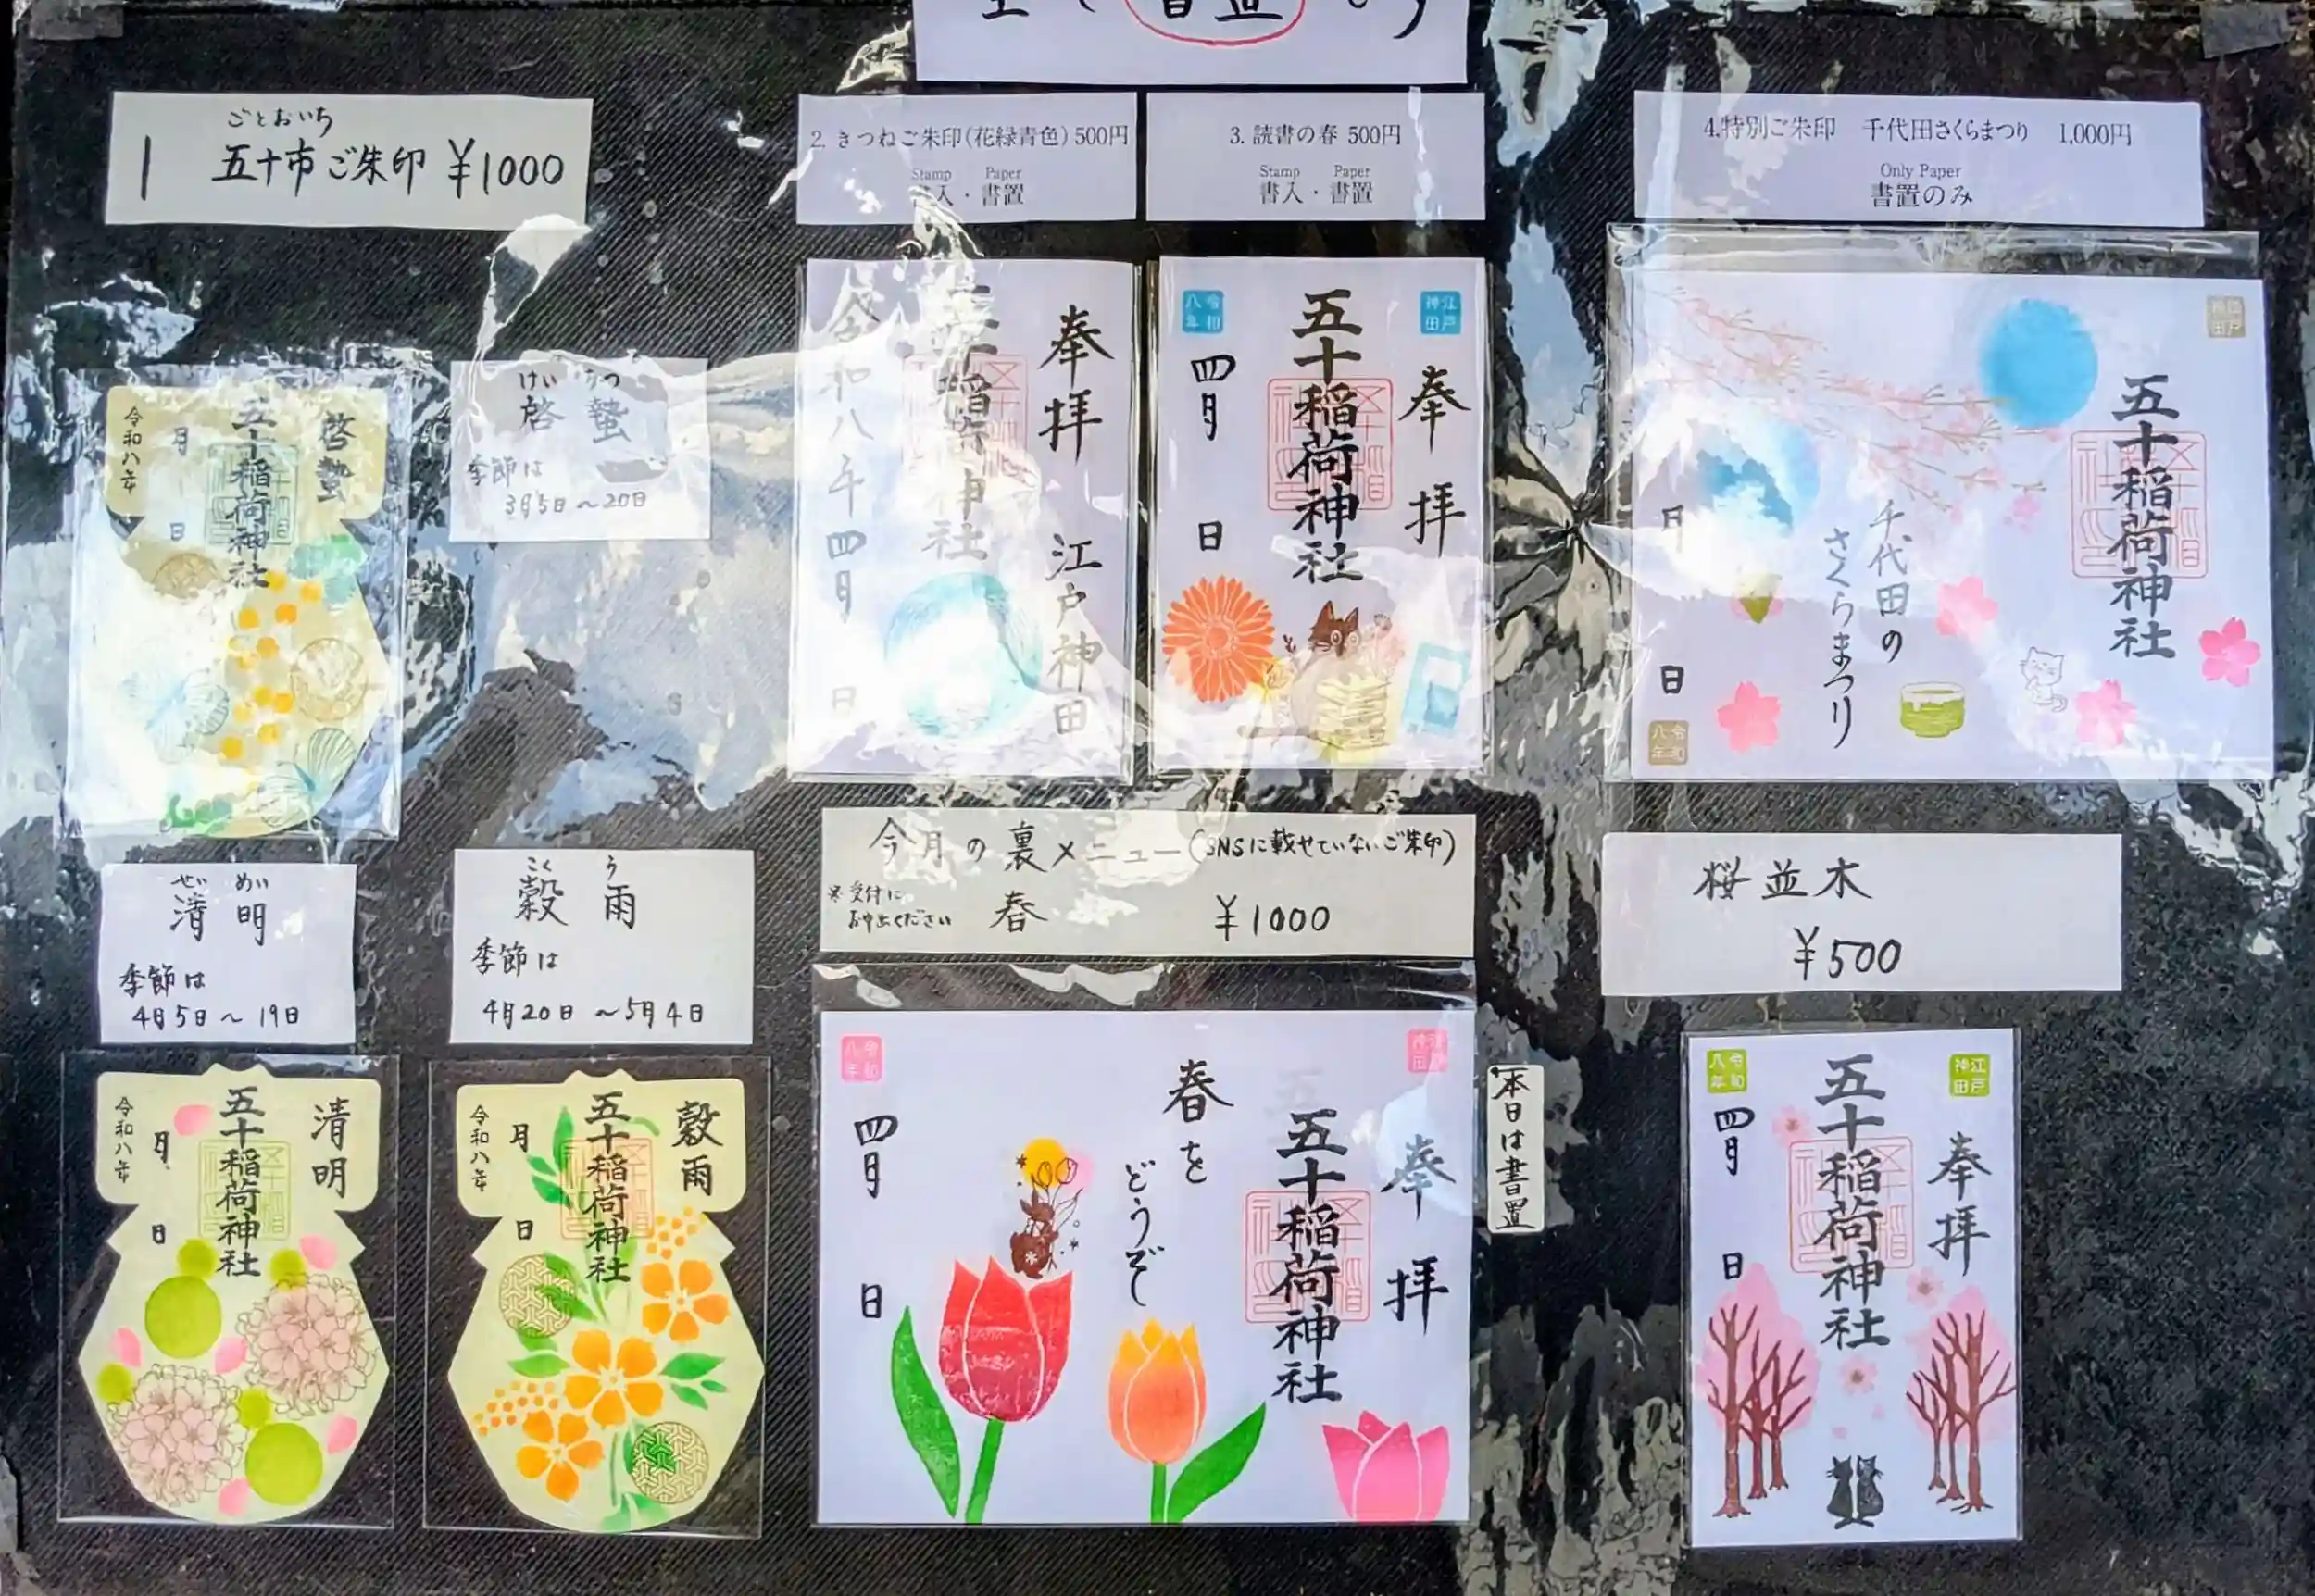 書置
ごとおいち
1 五十市ご朱印 ¥1000
2. きつねご朱印(花緑青色) 500円
Stamp Paper
書入・書置
3. 読書の春 500円
Stamp Paper
書入・書置
4.特別ご朱印 千代田さくらまつり 1,000円
Only Paper
書置のみ
啓蟄
五十稲荷神社
月 日
令和八年
けい ちつ
啓蟄
季節は
3月5日〜20日
奉拝 江戸神田
五十稲荷神社
令和八年四月 日
江戸神田
奉拝
五十稲荷神社
令和八年
四月 日
江戸神田
五十稲荷神社
千代田の
さくらまつり
月 日
令和八年
せい めい
清明
季節は
4月5日〜19日
こく う
穀雨
季節は
4月20日〜5月4日
今月の裏メニュー(SNSに載せていないご朱印)
※受付に
お申出ください
春 ¥1000
桜並木
¥500
清明
五十稲荷神社
月 日
令和八年
穀雨
五十稲荷神社
月 日
令和八年
江戸神田
奉拝
五十稲荷神社
春を
どうぞ
令和八年
四月 日
本日は書置
江戸神田
奉拝
五十稲荷神社
令和八年
四月 日